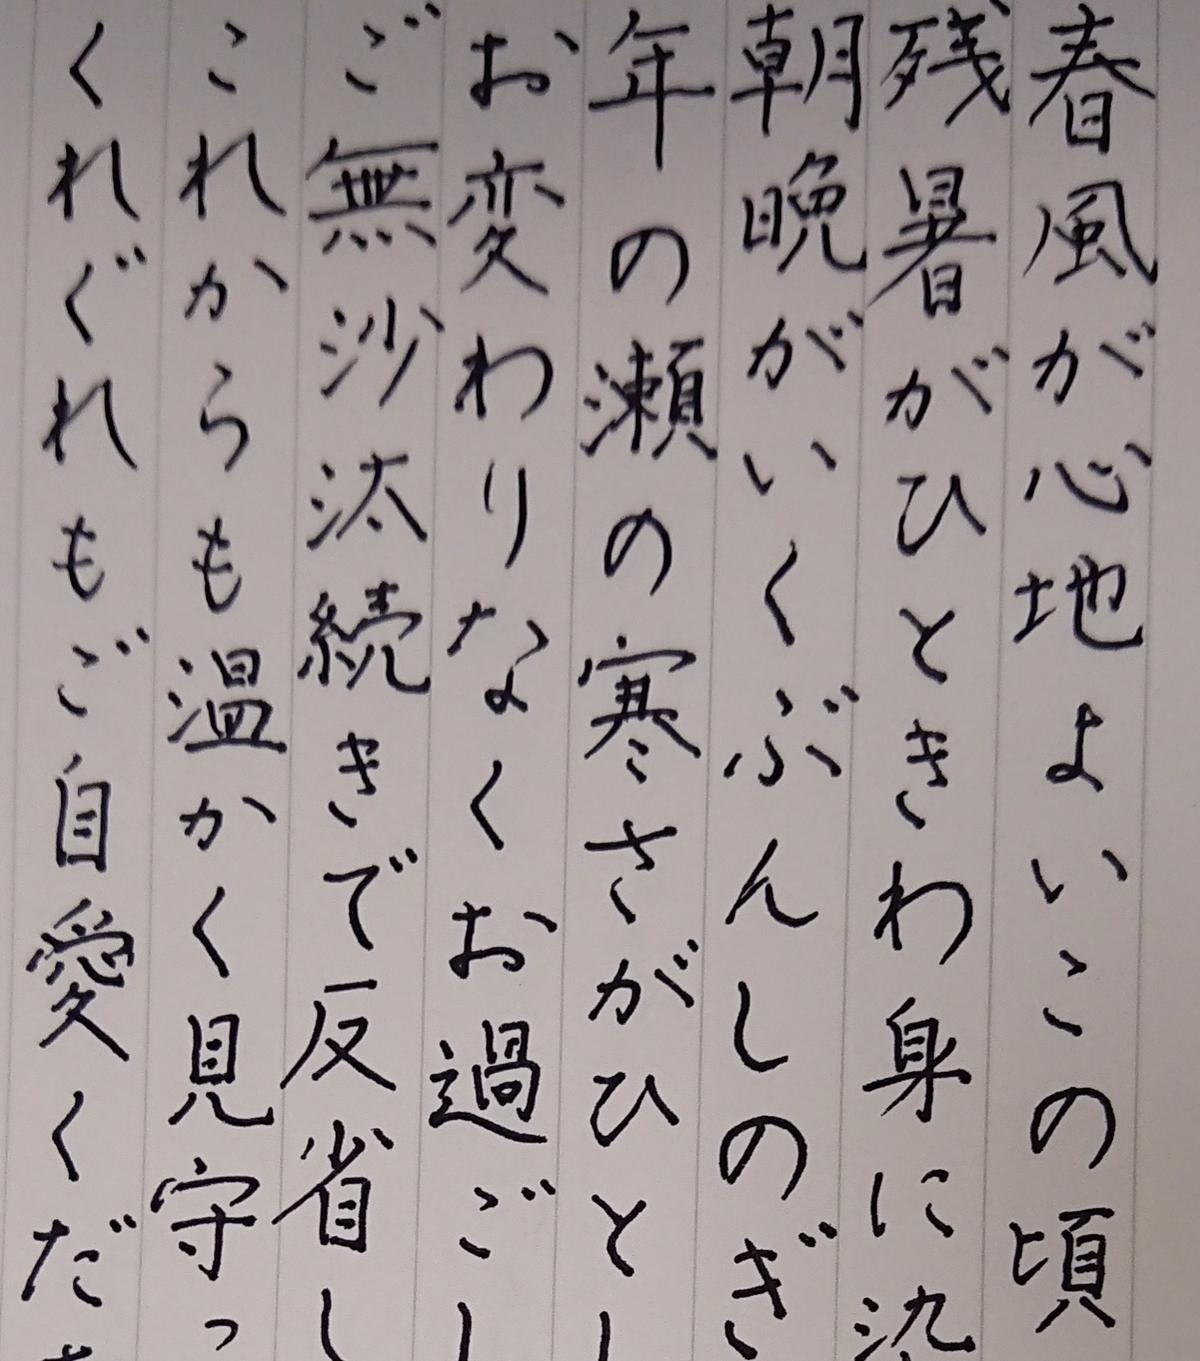 春風が心地よいこの頃
残暑がひときわ身に染
朝晩がいくぶんしのぎ
年の瀬の寒さがひとし
お変わりなくお過ごし
ご無沙汰続きで反省し
これからも温かく見守っ
くれぐれもご自愛くださ